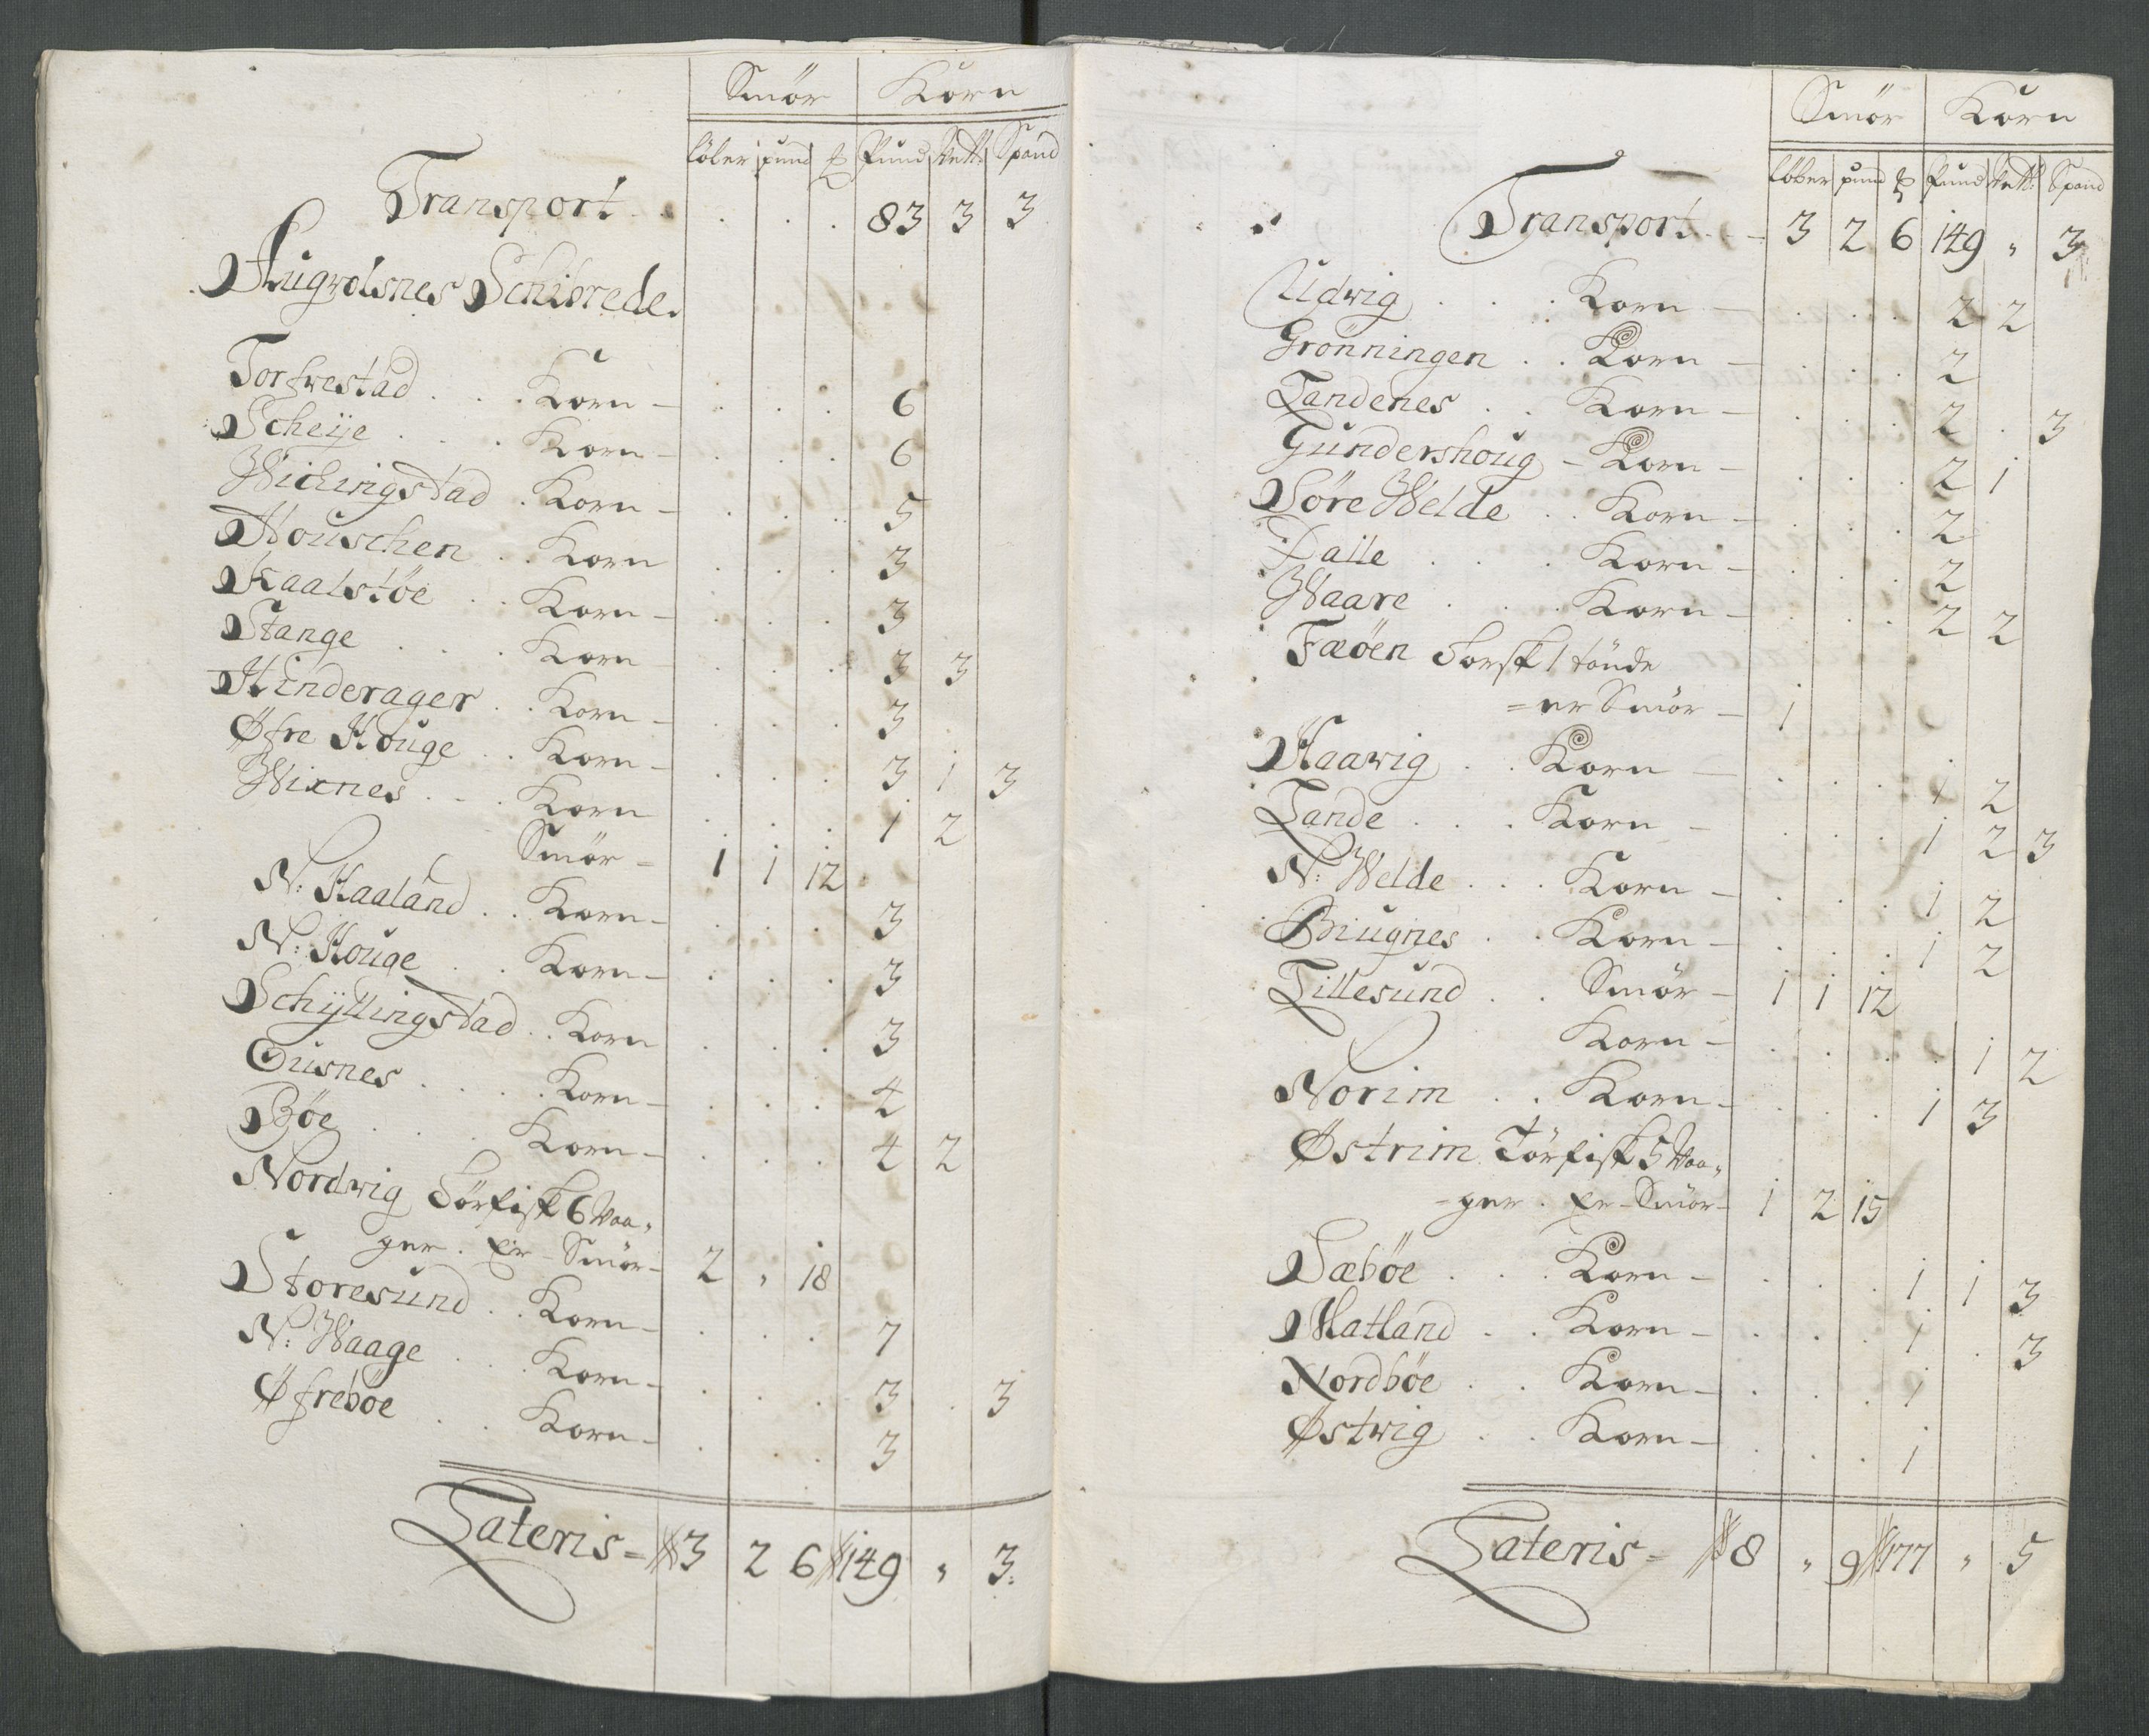 Smör Korn
löber pund ℔ Pund Vett: Spand
Transport . . . . 83 3 3
Augvolsnes Schibrede.
Torfvestad . . . Korn - . . . 6
Scheije . . . Korn - . . . 6
Wichingstad . Korn - . . . 5
Houschen . . Korn . . . 3
Kaalstöe . . Korn - . . . 3
Stange . . . Korn . . . 3 3
Hinderager . . Korn - . . . 3
Øfre Houge . . Korn - . . . 3 1 3
Wixnes . . . Korn . . . 1 2
Smör - 1 1 12
N: Haaland . . Korn - . . . 3
N: Houge . . Korn - . . . 3
Schyllingstad . . Korn . . . 3
Gusnes . . . . Korn - . . . 4
Böe . . . Korn - . . . 4 2
Nordvig Törfisk 6 Waa„
ger . Er - Smör - 2 „ 18
Storesund . . Korn - . . . 7
N: Waage . . . Korn - . . . 3 . 3
Øfreböe . . Korn - . . . 3
Lateris = 3 2 6 149 „ 3.
Smör Korn
löber pund ℔ Pund Vett: Spand
Transport - 3 2 6 149 „ 3
Udvig . . . Korn - . . . 2 2
Grönningen . . Korn - . . . 2
Landenes . . Korn - . . . 2 . 3
Gundershoug - Korn - . . . 2 1
Söre Welde . . Korn - . . . 2
Dalle . . . Korn - . . . 2
Waare . . . Korn - . . . 2 2
Fæöen Torsk 1 tönde
= er Smör - 1
Haavig . . Korn - . . . 1 2
Lande . . . Korn - . . . 1 2 3
N: Welde . . . Korn - . . . 1 2
Biugnes . . Korn - . . . 1 2
Lillesund . . Smör - 1 1 12
Korn - . . . . 1 2
Norim . . Korn - . . . 1 3
Østrim Törfisk 5 Waa„
= ger . Er - Smör - 1 2 15
Sæböe . . . Korn - . . . 1 1 3
Hatland . . Korn - . . . 1 . 3
Nordböe . . Korn - . . . 1
Østvig . . Korn - . . . 1
Lateris = 8 „ 9 177 „ 5